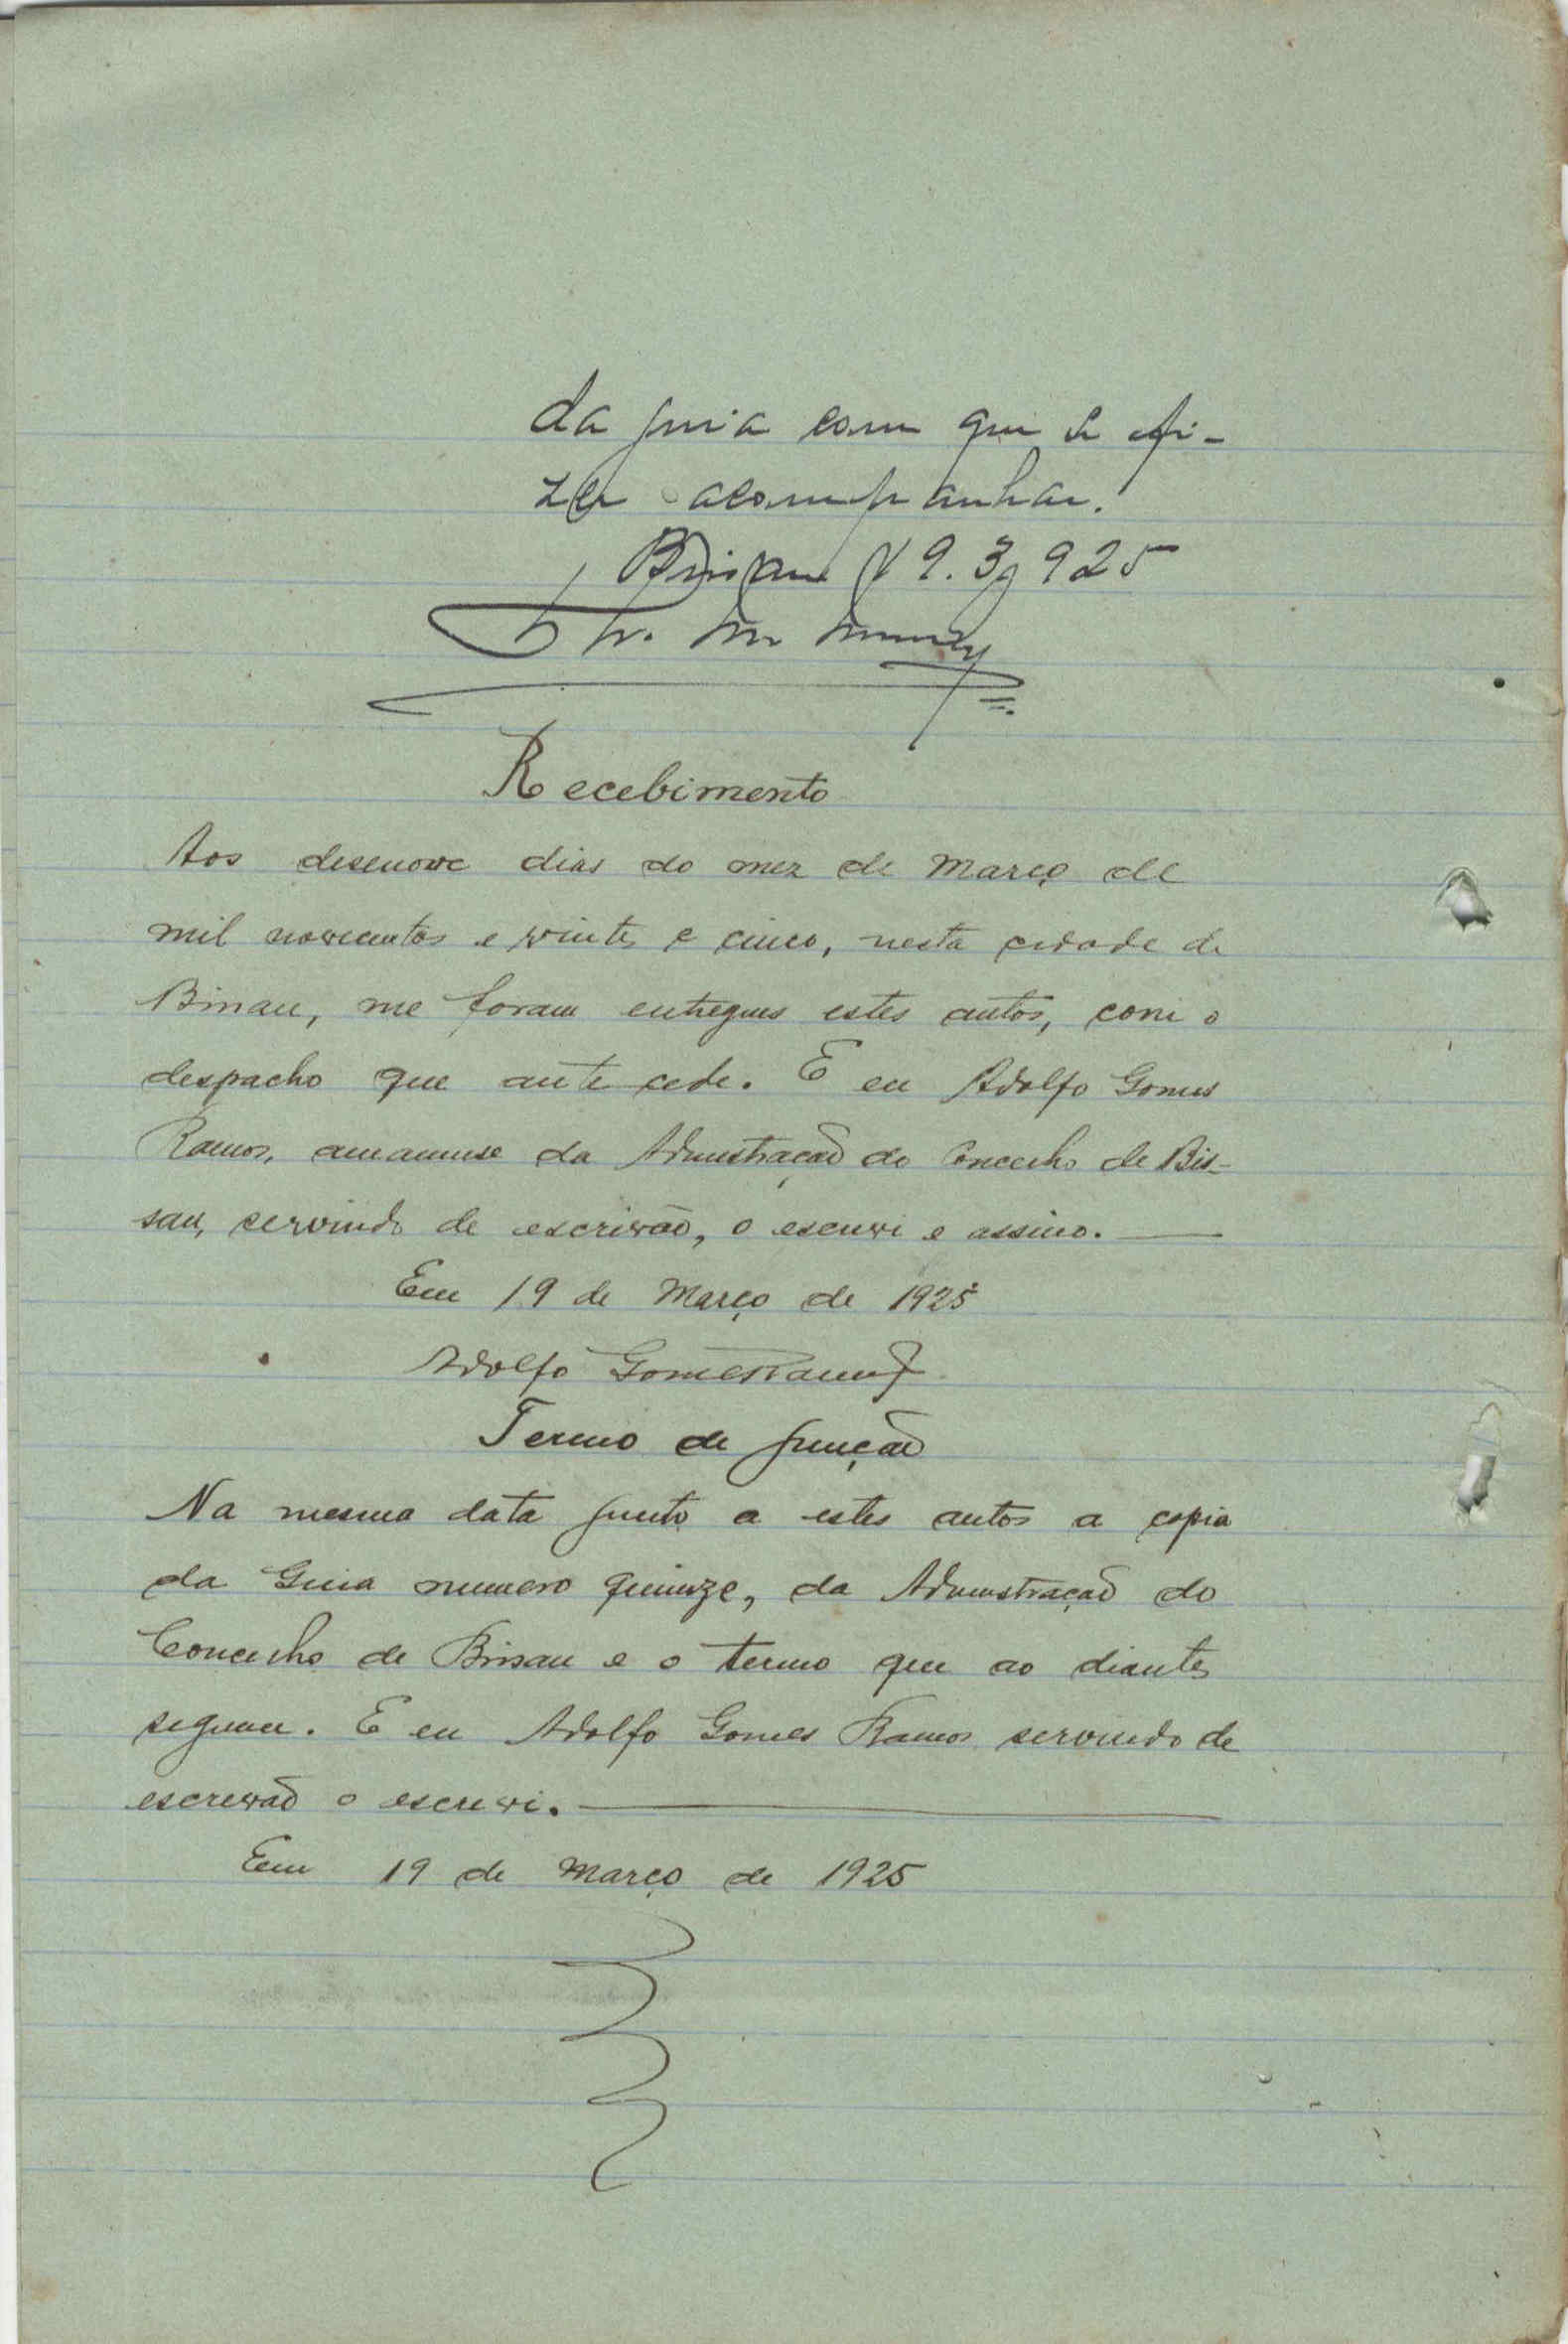 da guia com que se fi-
zer acompanhar.
Bissau 19.3.925
Recebimento
Aos desenove dias do mez de Março de
mil novecentos e vinte e cinco, nesta cidade de
Bissau, me foram entregues estes autos, com o
despacho que antecede. E eu Adolfo Gomes
Ramos, amanuense da Admnstração do Concelho de Bis-
sau, servindo de escrivão, o escrevi e assino.
Em 19 de Março de 1925
Adolfo Gomes Ramos
Termo de junção
Na mesma data junto a estes autos a copia
da Guia numero quinze, da Admnstração do
Concelho de Bissau e o termo que ao diante
seguem. E eu Adolfo Gomes Ramos servindo de
escrivão o escrevi.
Em 19 de Março de 1925